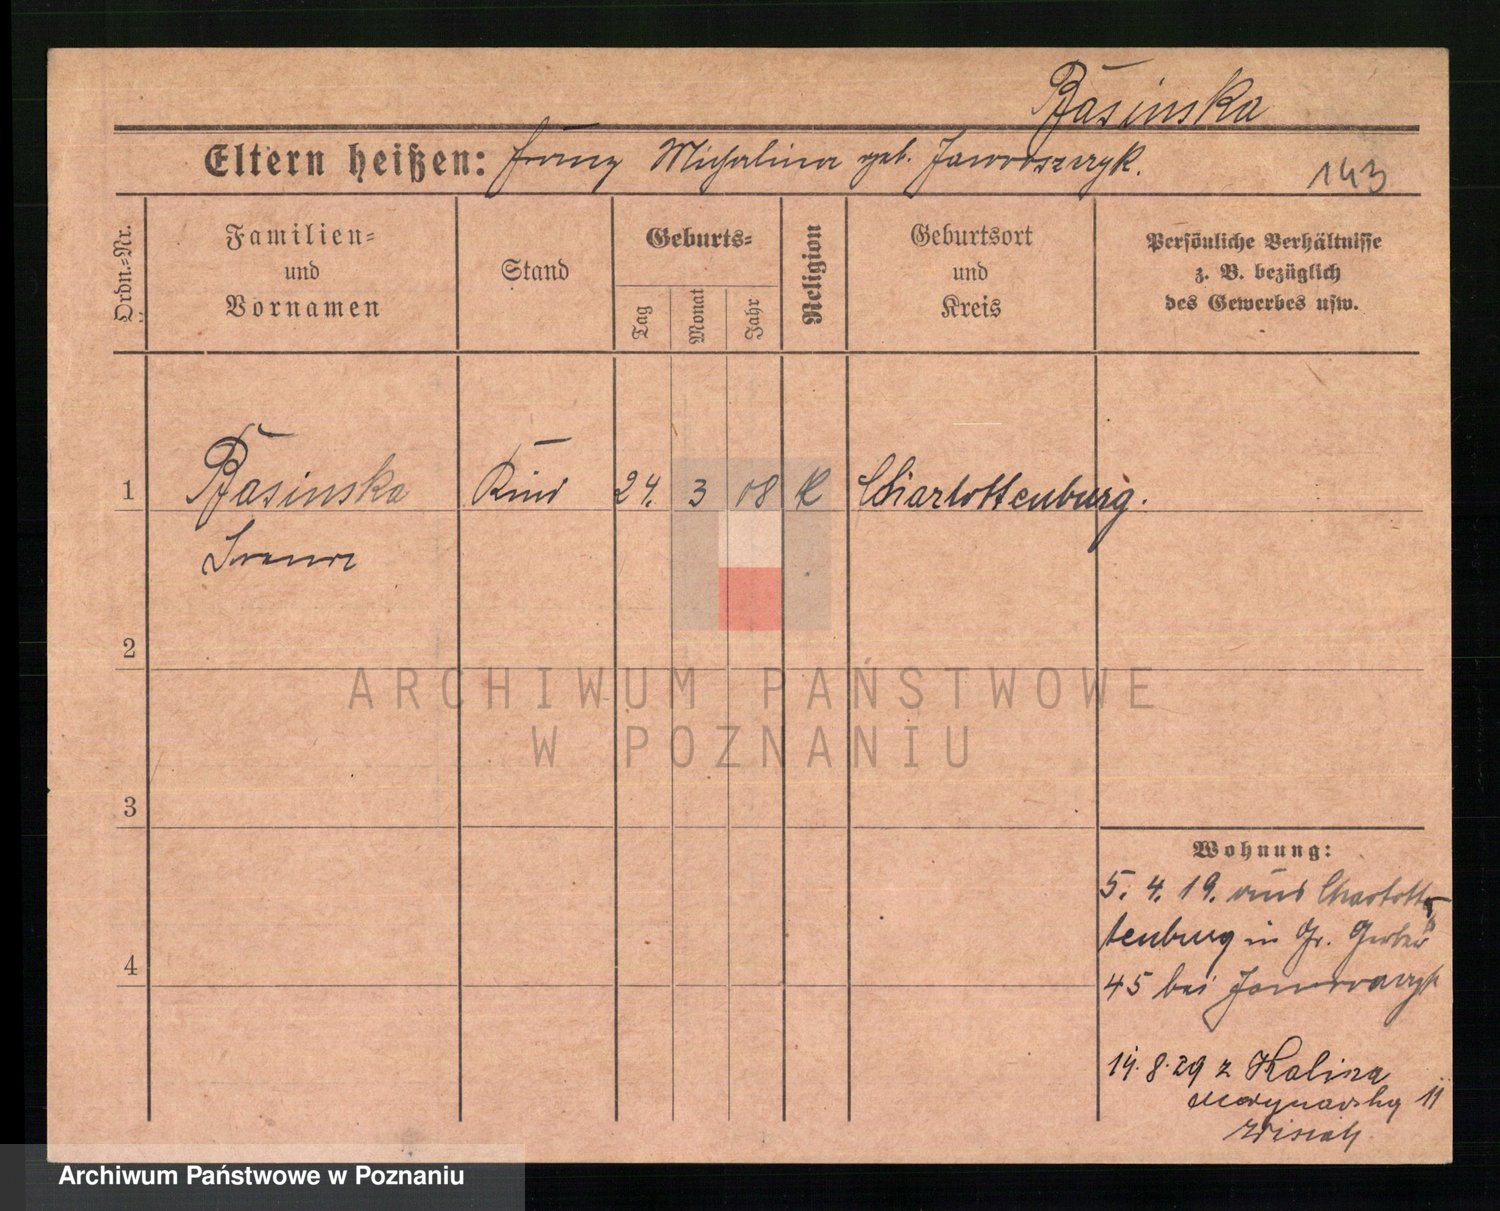 Basinska
Eltern heißen: Franz Michalina geb. Jaworszczyk.
143
Ordn.-Nr.
Familien-
und
Vornamen
Stand
Geburts-
Tag
Monat
Jahr
Religion
Geburtsort
und
Kreis
Persönliche Verhältnisse
z. B. bezüglich
des Gewerbes usw.
1 Basinska Kind 24. 3 08 K Charlottenburg.
2
3
4
Wohnung:
5. 4. 19. aus Charlot
tenburg in Gr. Gerber
45 bei
14. 8. 29 z Kalisza
11
ARCHIWUM PAŃSTWOWE
W POZNANIU
Archiwum Państwowe w Poznaniu